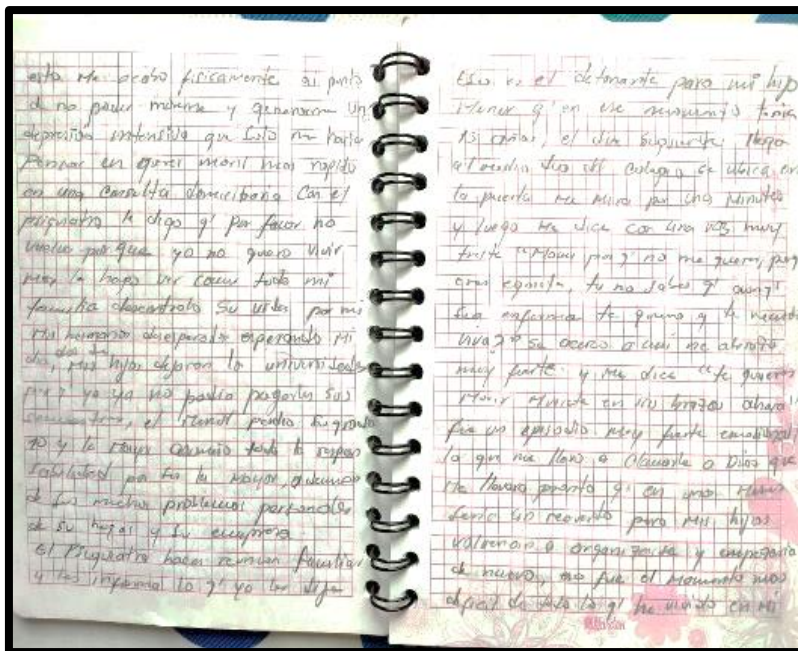 esto me acabo fisicamente al punto
de no poder moverme y generarme una
depresión intensiva que solo me hacia
Pensar en querer morir mas rapido
en una consulta domiciliaria con el
psiquiatra le digo q' por favor no
vuelva por que yo no quiero vivir
mas le hago ver como toda mi
familia descontrolo su vida por mi
Mis hermanos desesperados esperando mi
dia, mis hijos dejaron la universidad
ya ya no podia pagarles sus
semestres, el Menor perdio su grado
10 y la Mayor asumio toda la respon
sabilidad por ser la mayor, 
de sus muchos problemas personales
de su hogar y su empresa.
El Psiquiatra hacer reunion familiar
y les informa lo q' yo les dije
Eso es el detonante para mi hijo
Menor q' en ese momento tenia
años, el dia siguiente llega
al medio dia del colegio se ubica en
la puerta me mira por unos minutos
y luego me dice con una voz muy
triste "Mama por q' no me quieres, porq
eres egoista, tu no sabes q' aunq'
sea enferma te quiero y te necesito
viva?" se acerco a mi me abrazo
muy fuerte y me dice "te quieres
Morir Muerete en mis brazos ahora"
fue un episodio muy fuerte emocional
lo que me llevo a clamarle a Dios que
me llevara pronto q' en unos meses
seria un recuerdo para mis hijos
volverian a organizarse y empezarian
de nuevo, eso fue el momento mas
dificil de todo lo q' he vivido en mi